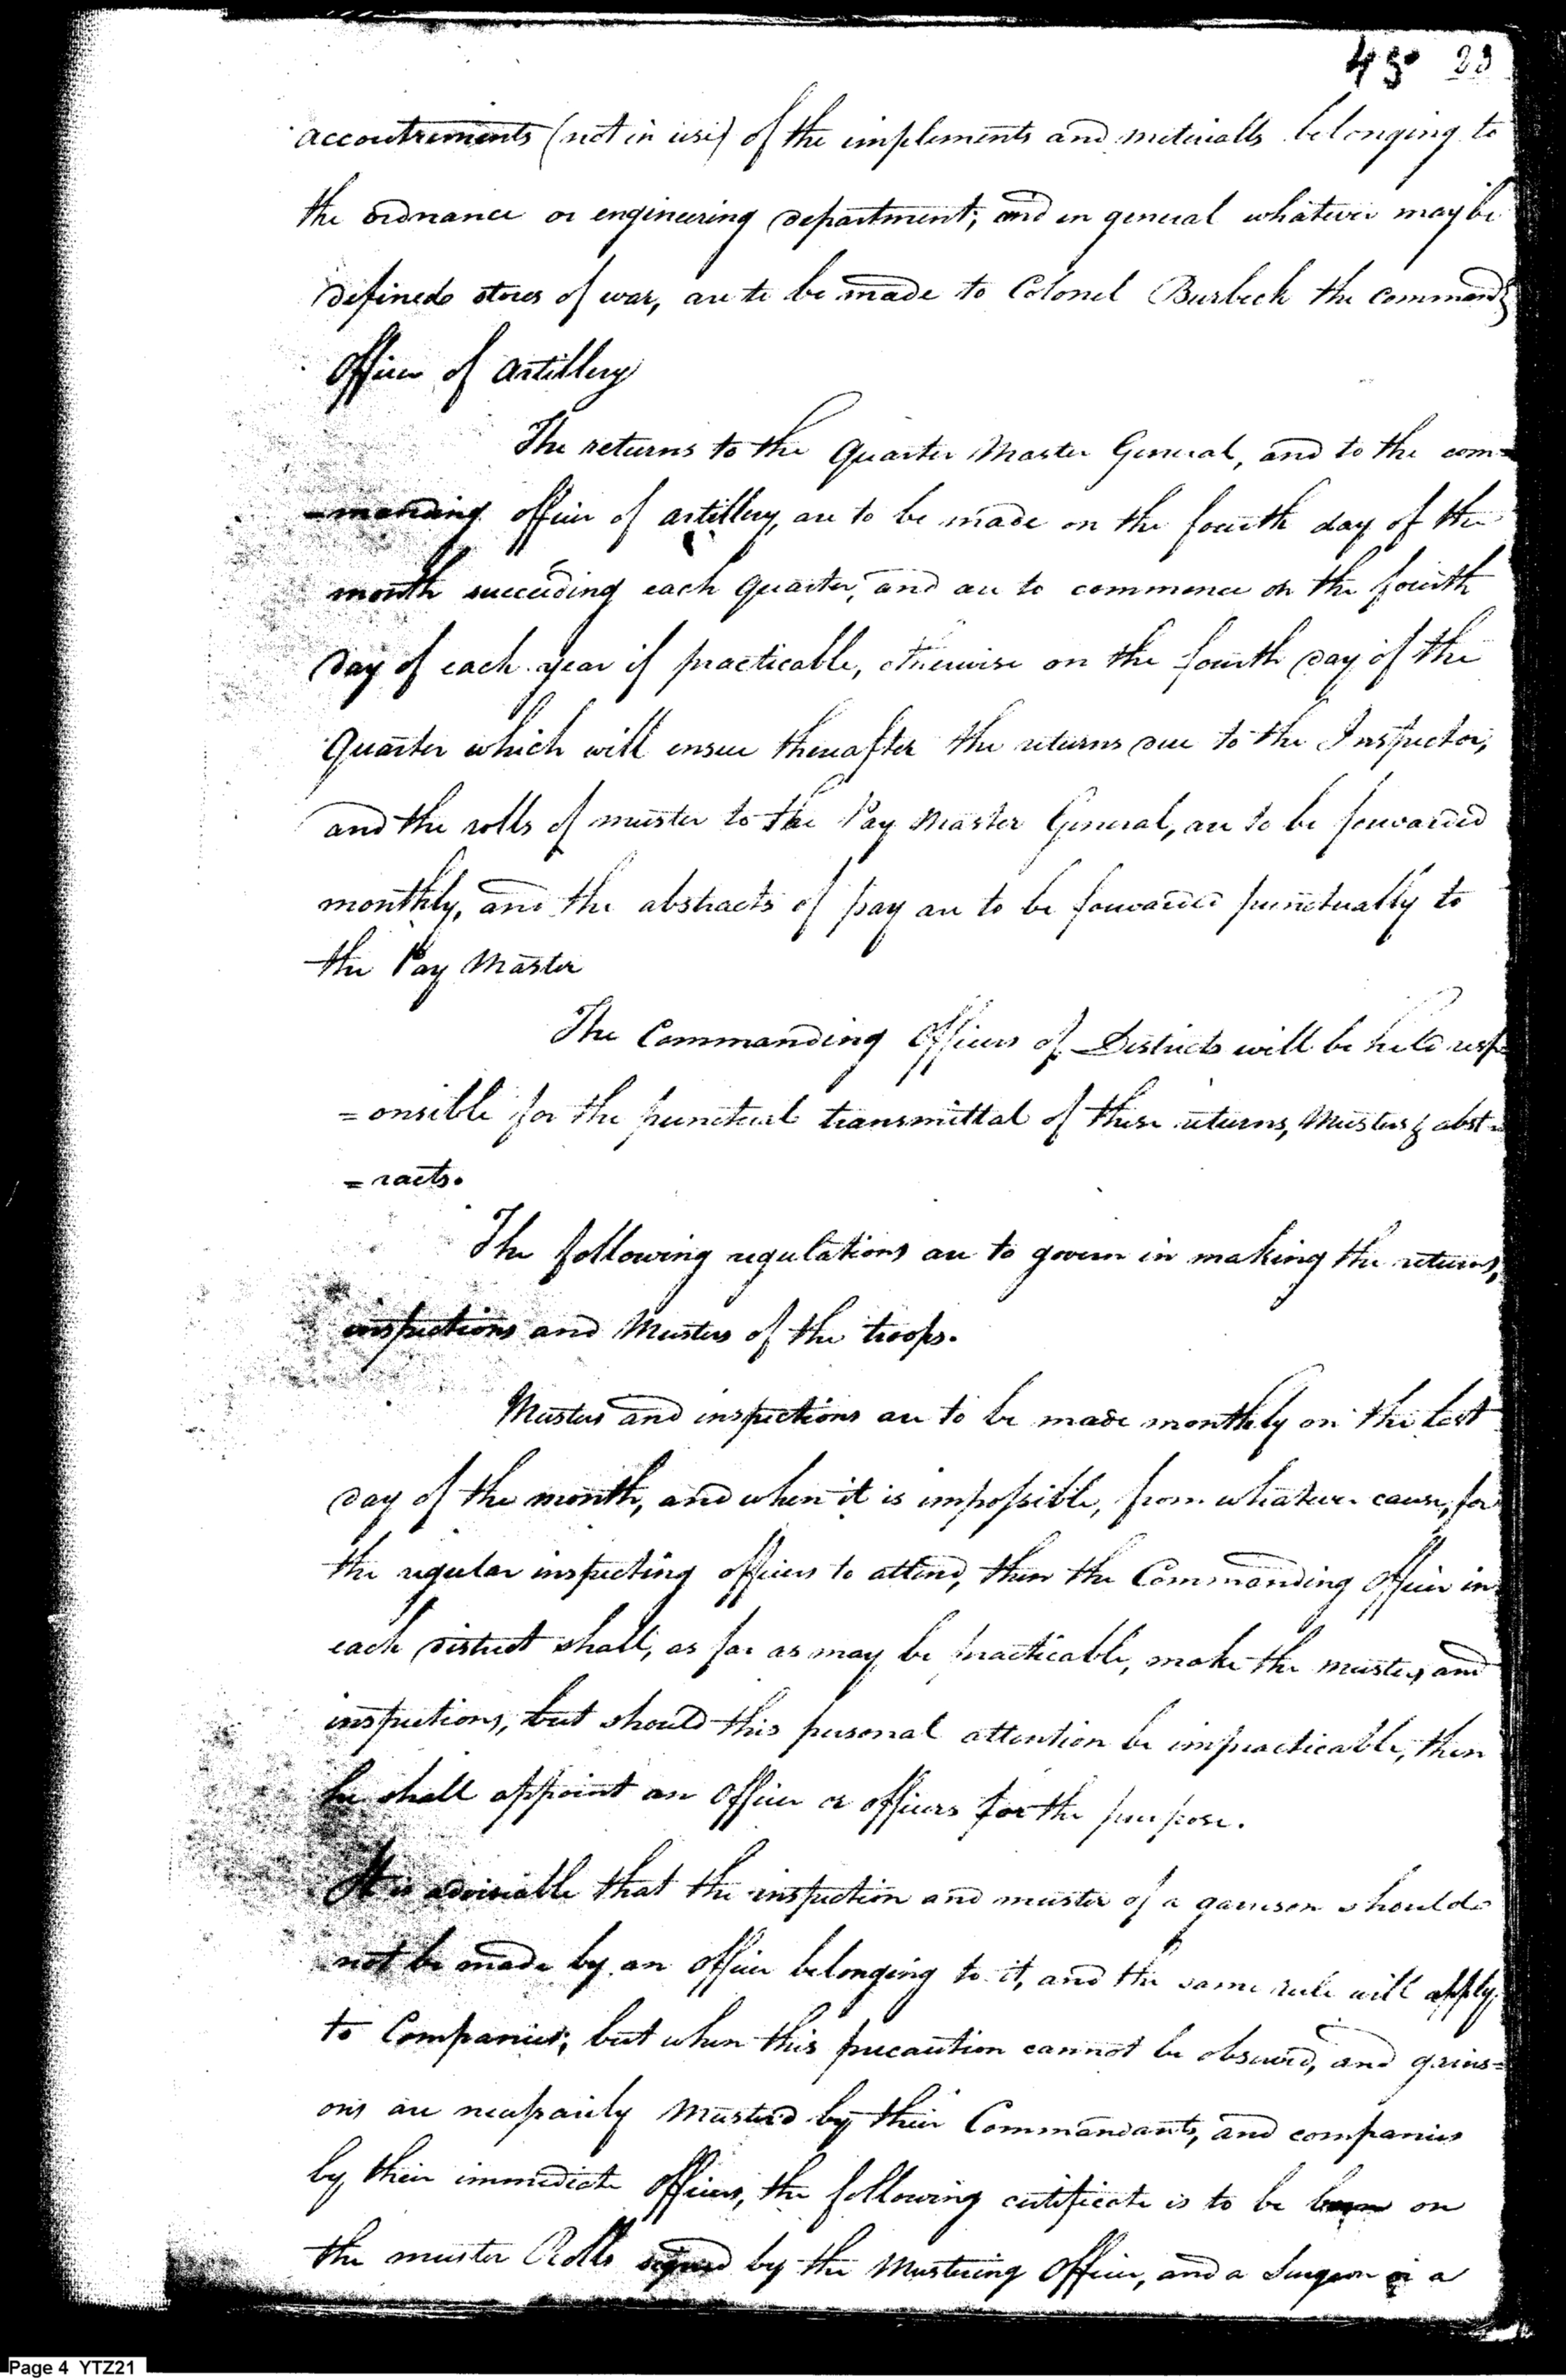 45 23
accoutrements (not in use) of the implements and meterialls belonging to
the ordnance or engineering department; and in general whatever may be
defined stores of war, are to be made to Colonel Burbeck the command'g
officer of artillery
The returns to the Quarter Master General, and to the com-
-manding officer of artillery, are to be made on the fourth day of the
month succeeding each quarter, and are to commence on the fourth
day of each year if practicable, otherwise on the fourth day of the
Quarter which will ensue thereafter the returns due to the Inspector,
and the rolls of muster to the Pay Master General, are to be forwarded
monthly, and the abstracts of pay are to be forwarded punctually to
the Pay Master
The Commanding Officers of Districts will be held resp
=onsible for the punctual transmittal of these returns, Musters & abst=
=racts.
The following regulations are to govern in making the returns,
inspections and Musters of the troops.
Musters and inspections are to be made monthly on the last
day of the month, and when it is impossible, from whatever cause, for
the regular inspecting officers to attend, then the Commanding officer in
each district shall, as far as may be practicable, make the musters and
inspections, but should this personal attention be impracticable, then
he shall appoint an officer or officers for the purpose.
It is adviseable that the inspection and muster of a garrison should
not be made by an officer belonging to it, and the same rule will apply
to Companies; but when this precaution cannot be observed, and garris=
ons are necessarily Musterd by their Commandants, and companies
by their immediate officers, the following certificate is to be on
the muster Rolls signed by the Mustering Officer, and a Surgeon or a
Page 4 YTZ21